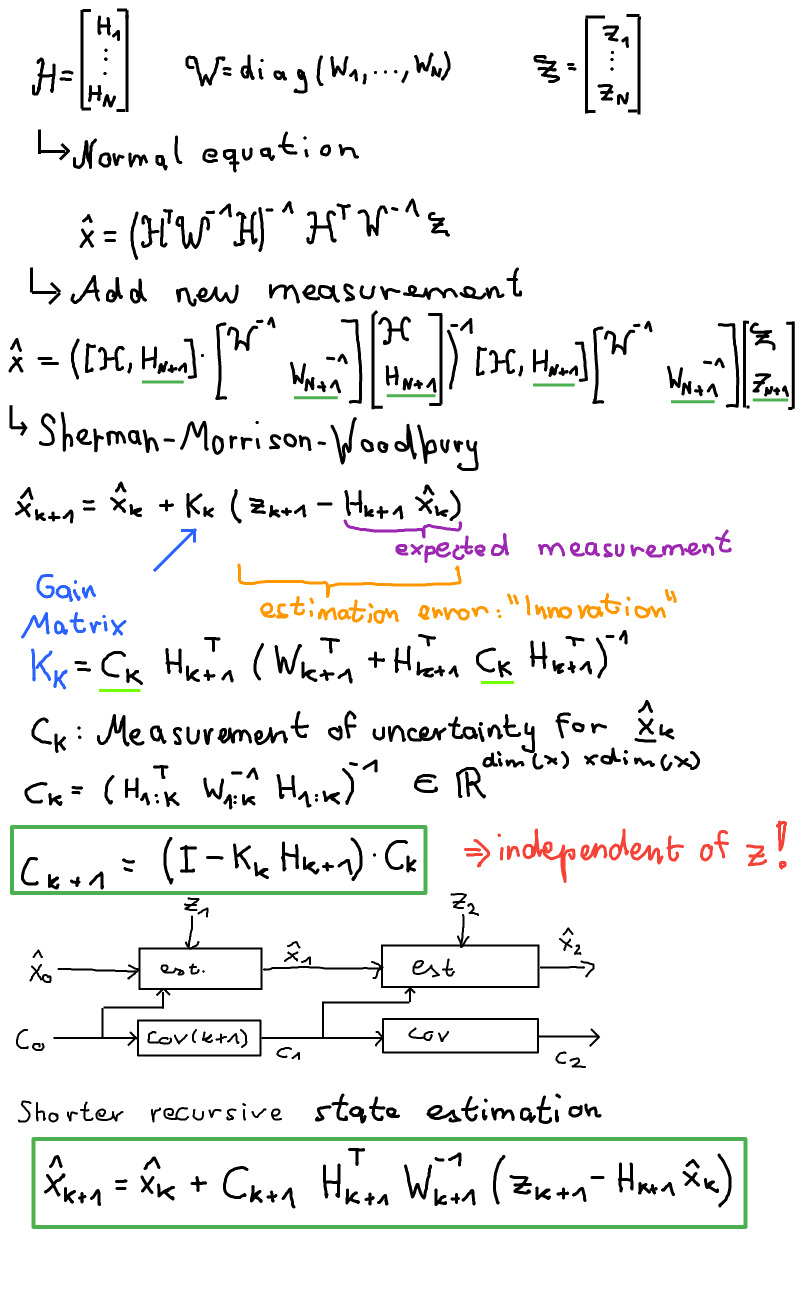 ℋ = [H₁ ⋮ H_N]   𝒲 = diag(W₁, ..., W_N)   𝓏 = [z₁ ⋮ z_N]
↳ Normal equation
x̂ = (ℋᵀ𝒲⁻¹ℋ)⁻¹ ℋᵀ 𝒲⁻¹ 𝓏
↳ Add new measurement
x̂ = ([ℋ, H_{N+1}] · [𝒲⁻¹ W_{N+1}⁻¹] [ℋ H_{N+1}])⁻¹ [ℋ, H_{N+1}] [𝒲⁻¹ W_{N+1}⁻¹] [𝓏 z_{N+1}]
↳ Sherman-Morrison-Woodbury
x̂_{k+1} = x̂_k + K_k (z_{k+1} - H_{k+1} x̂_k)
expected measurement
Gain
estimation error: "Innovation"
Matrix
K_k = C_k H_{k+1}ᵀ (W_{k+1}ᵀ + H_{k+1}ᵀ C_k H_{k+1}ᵀ)⁻¹
C_k: Measurement of uncertainty for x̂_k
C_k = (H_{1:k}ᵀ W_{1:k}⁻¹ H_{1:k})⁻¹ ∈ ℝ^{dim(x) x dim(x)}
C_{k+1} = (I - K_k H_{k+1}) · C_k   ⇒ independent of z!
z₁   z₂
x̂₀   est.   x̂₁   est   x̂₂
C₀   cov(k+1)   C₁   cov   C₂
Shorter recursive state estimation
x̂_{k+1} = x̂_k + C_{k+1} H_{k+1}ᵀ W_{k+1}⁻¹ (z_{k+1} - H_{k+1} x̂_k)